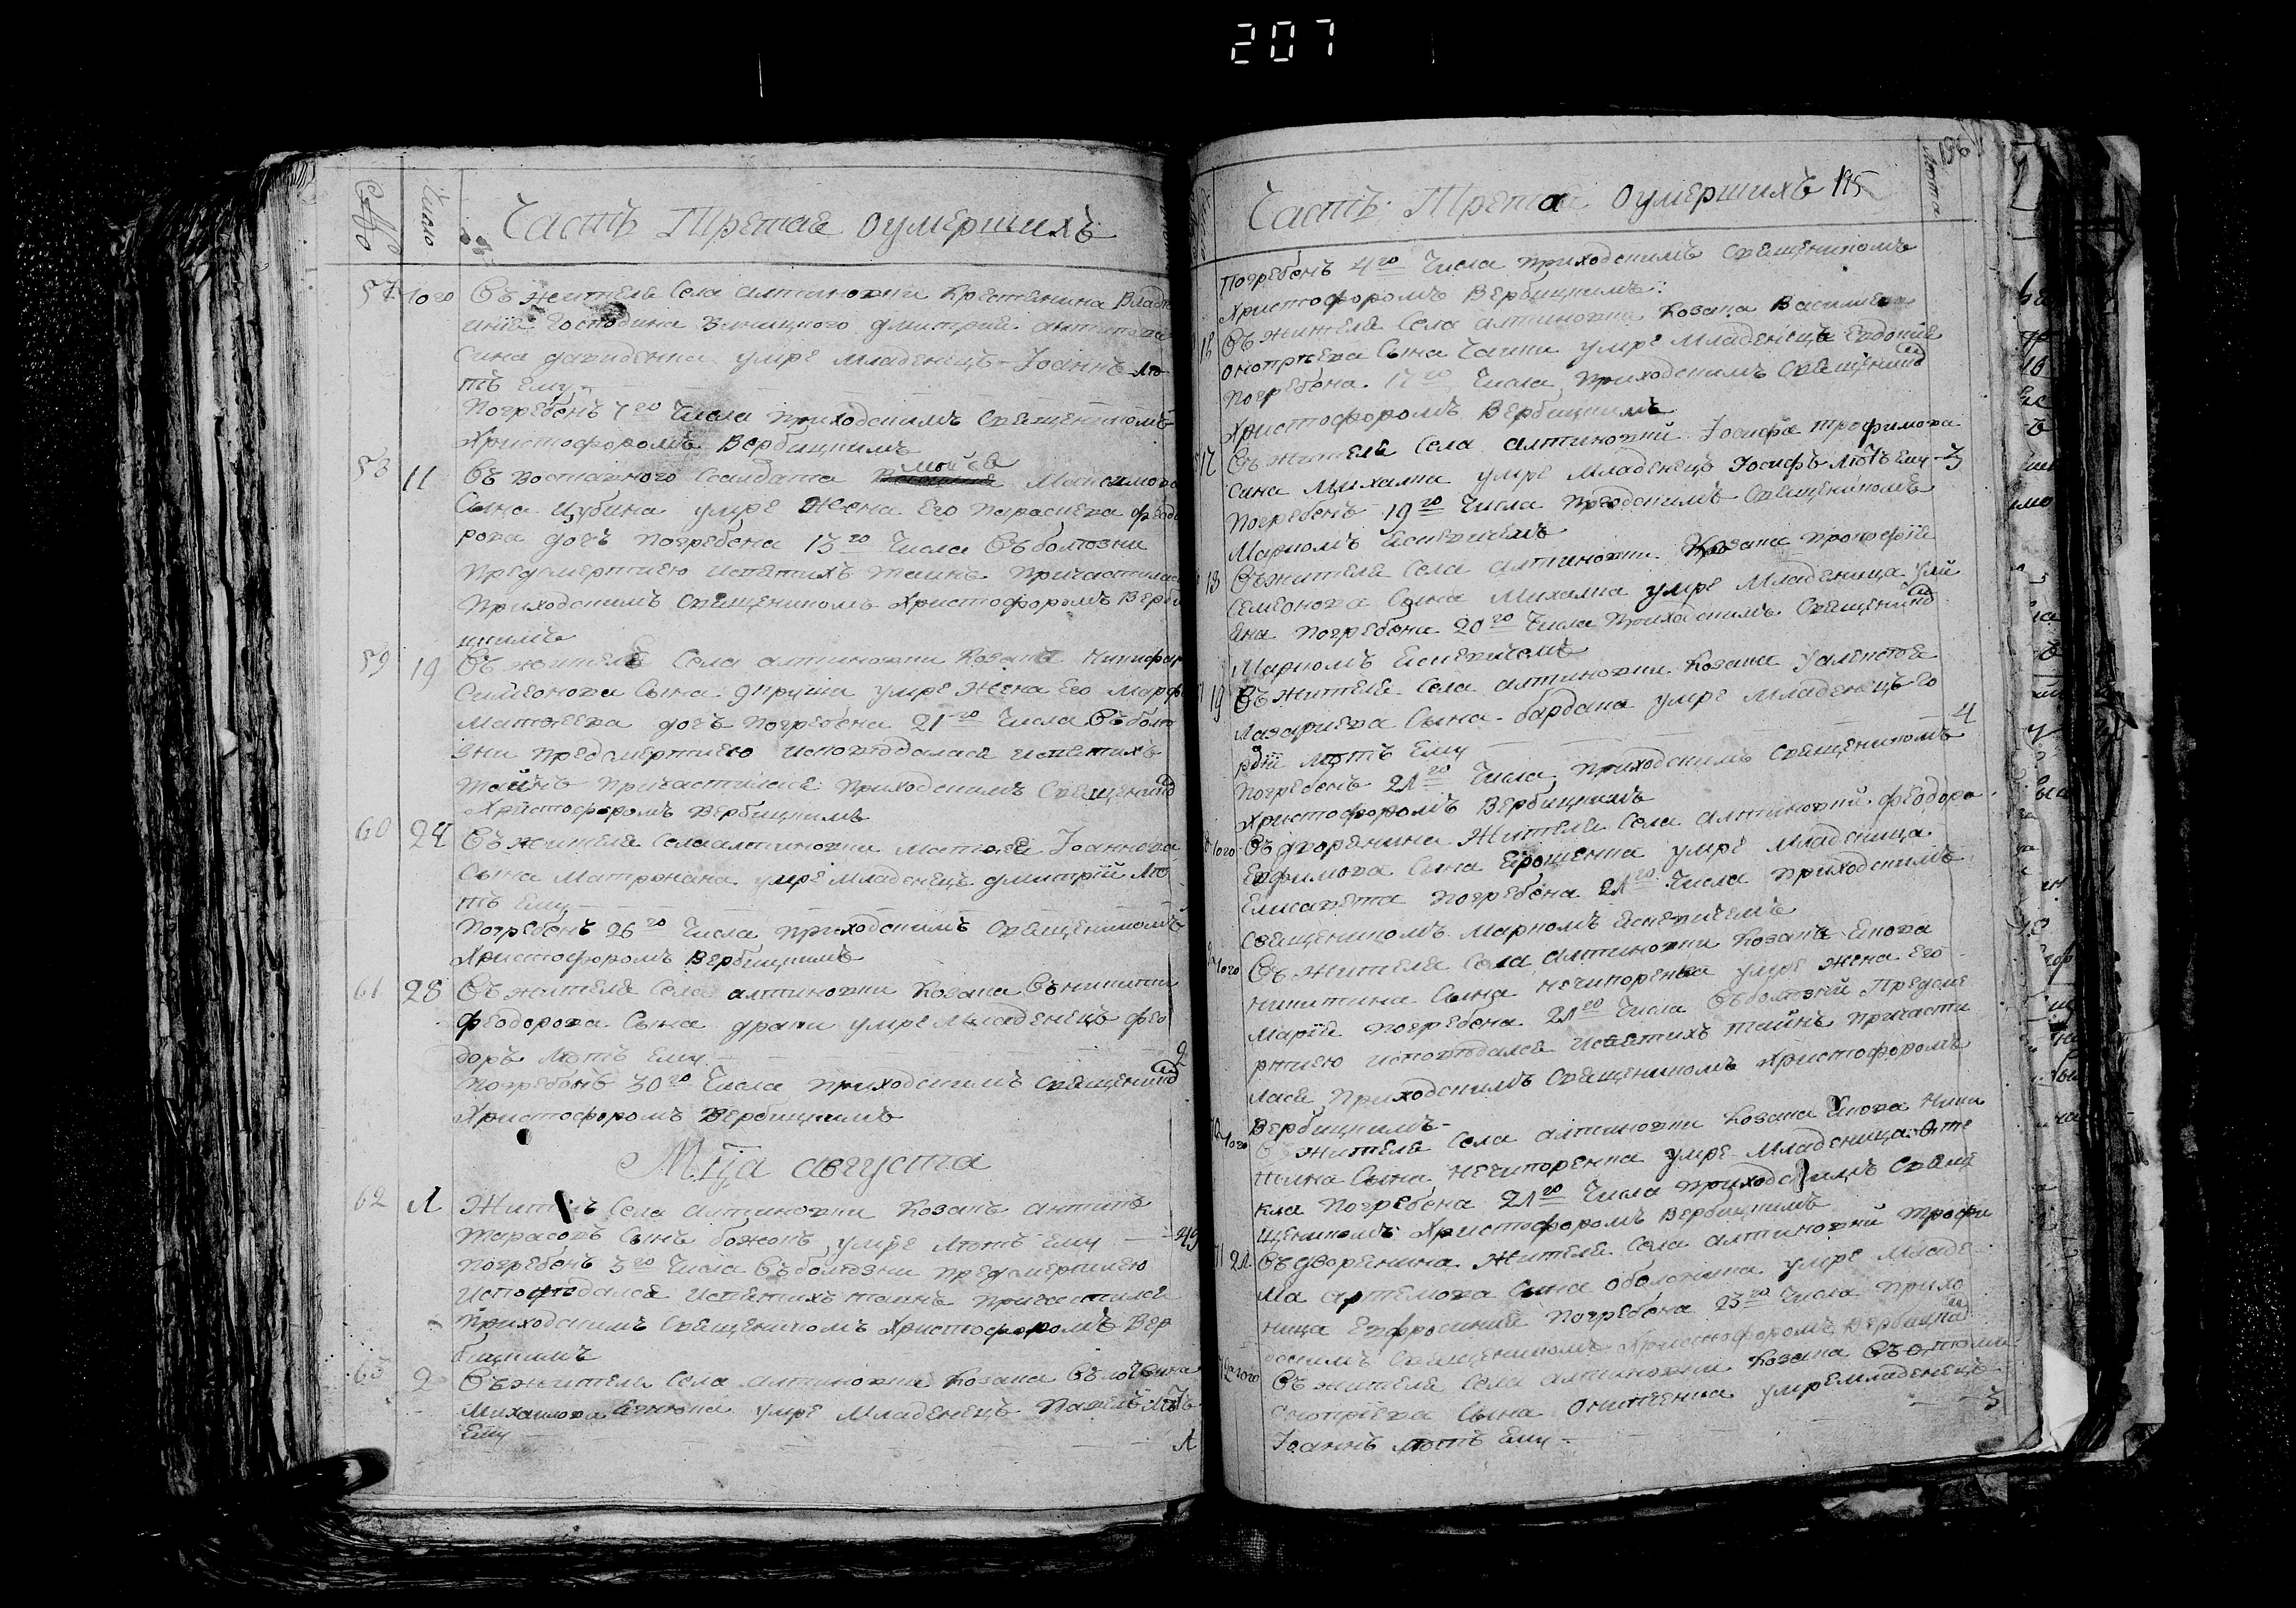 207
Число
Часть Третая оумершихъ
57 того Въ жителя Села алтиновки Крестянина Владѣ
ния Господина дмитрия антипова
Сина давиденка умре младенецъ Іоаннъ лѣ
тъ Ему
Погребенъ 7го Числа приходскимъ Священикомъ
Христофоромъ Вербицкимъ
58 11 Въ Солдата Моисѣя Максимова
Сына Цубина умре Жена Его Параскева Феодо
рова дочь погребена 13го Числа Въ болѣзни
предсмертнею исвятихъ таинъ причастилас
приходскимъ Священикомъ Христофоромъ Верби
цкимъ
59 19 Въ жителя Села алтиновки Козака Никифор
Симеонова Сына умре Жена Его Марфа
Матѳеева дочь погребена 21го Числа Въ болѣ
зни предсмертнею исповѣдалася исвятихъ
тайнъ причастилася приходскимъ Священико
Христофоромъ Вербицкимъ
60 24 Въ жителя Села алтиновки Матѳея Іоаннова
Сына умре младенецъ дмитрій лѣ
тъ Ему
Погребенъ 26го Числа приходскимъ Священикомъ
Христофоромъ Вербицкимъ
61 28 Въ жителя Села алтиновки Козака Никити
Феодорова Сына умре младенецъ Фео
доръ лѣтъ Ему 2
Погребенъ 30го Числа приходскимъ Священико
Христофоромъ Вербицкимъ
Мца августа
62 1 Житель Села алтиновки Козакъ антипъ
Тарасовъ Сынъ божокъ умре лѣтъ Ему 49
погребенъ 3го Числа Въ болѣзни предсмертнею
Исповѣдался исвятихъ таинъ причастился
приходскимъ Священикомъ Христофоромъ Вер
бицкимъ
63 2 Въ жителя Села алтиновки Козака
Михаилова умре младенецъ Павелъ лѣтъ
Ему 1
Часть Третая оумершихъ 195
196
Лѣта
Погребенъ 4го Числа приходскимъ Священикомъ
Христофоромъ Вербицкимъ
Въ жителя Села алтиновки Козака Василия
онопріева Сына умре младенеца Евдокия
Погребена 17го Числа приходскимъ Священико
Христофоромъ Вербицкимъ
17 Въ жителя Села алтиновки Іосифа трофимова
Сина Михалка умре младенецъ Іосифъ лѣтъ Ему 3
Погребенъ 19го Числа приходскимъ Священикомъ
Маркомъ
18 Въ жителя Села алтиновки Козака прокофия
Семеонова Сына Михалка умре младеница Ули
яна погребена 20го Числа приходскимъ Священико
Маркомъ
19 Въ жителя Села алтиновки Козака
Лазариева Сына бардака умре младенецъ Ге
ргий лѣтъ Ему 4
Погребенъ 21го Числа приходскимъ Священикомъ
Христофоромъ Вербицкимъ
того Въ дворенина Жителя Села алтиновки Феодора
Ефимова Сына Ерошенка умре младеница
Елисавета погребена 21го Числа приходскимъ
Священикомъ Маркомъ
того Въ жителя Села алтиновки Козака Якова
никитина Сына нечипоренка умре жена Его
Мария погребена 21го Числа Въ болѣзни Предсме
ртнею исповѣдалася исвятихъ тайнъ причасти
лася приходскимъ Священикомъ Христофоромъ
Вербицкимъ
того Въ жителя Села алтиновки Козака Якова Ники
тина Сына нечипоренка умре младеница Ѳе
кла погребена 21го Числа приходскимъ Свяще
щеникомъ Христофоромъ Вербицкимъ
71 21 Въ дворенина Жителя Села алтиновки трофи
ма артемова Сина оболонина умре младе
ница Евфросиния погребена 23го Числа прихо
дскимъ Священикомъ Христофоромъ Вербицки
того Въ жителя Села алтиновки Козака
Онопріева Сына онитенка умре младенецъ
Іоаннъ лѣтъ Ему 3